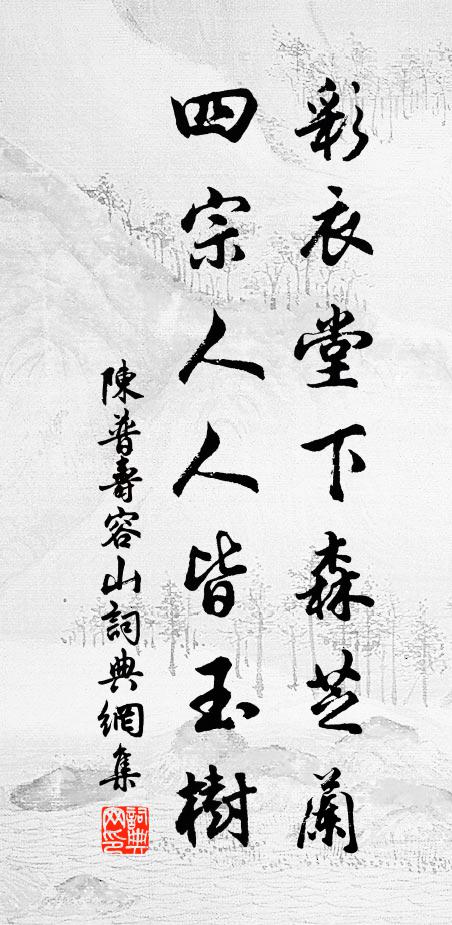 彩衣堂下森芝蘭
四宗人人皆玉樹
陳普壽容山詞典網集
詞典網印